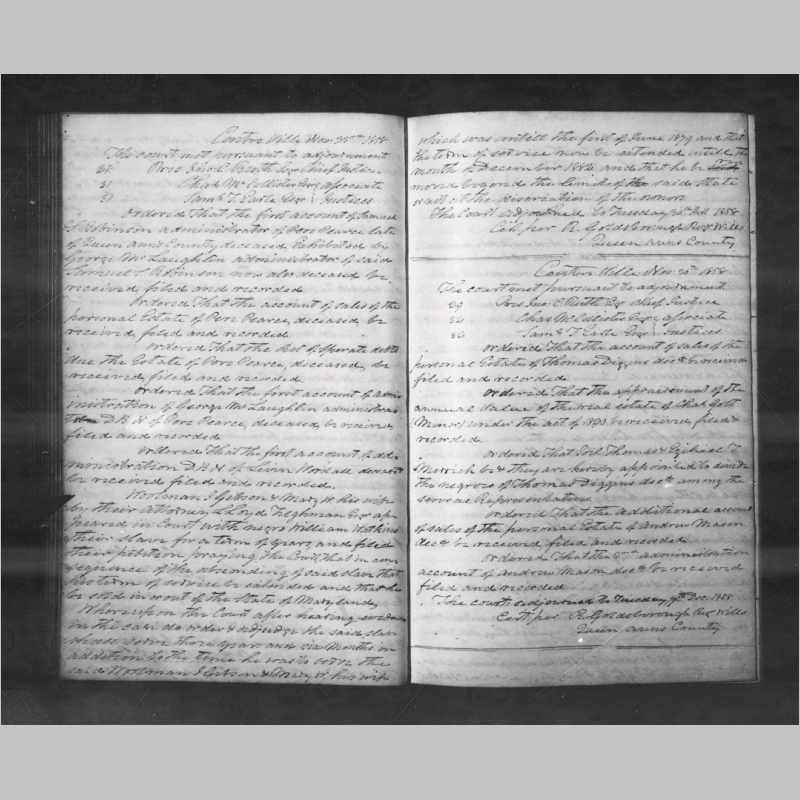 Centre Ville Nov 25th 1858
The court met pursuant to adjournment
Chief Justice
Chas McCollister Esqr associate
Saml T. Earle Esqr Justices
Ordered That the first account of Samuel
T Robinson administrator of Pere Pearce late
of Queen Anns County deceased Exhibited by
George McLaughlin administrator of said
Samuel T Robinson now also deceased be
received filed and recorded
Ordered That the account of sales of the
personal Estate of Pere Pearce, deceased be
received, filed and recorded
Ordered That the list of Sperate debts
due the Estate of Pere Pearce, deceased, be
received, filed and recorded
Ordered That the first account of admi
nistration of George McLaughlin administrator
D.B.N of Pere Pearce, deceased, be received
filed and recorded
Ordered That the first account of ad
ministration D.B.N of deceased
be received filed and recorded.
Woolman J Gibson & Mary W his wife
by their attorney Lloyd Tilghman Esqr ap
peared in Court with negro William
their slave for a term of years, and filed
their petition praying the Court, that in con
sequence of the absconding of said slave that
his term of service be extended and that he
be sold in or out of the State of Maryland,
Whereupon the Court after hearing
in the case do order & adjudge the said slave
three years and six months in
addition to the time he was to serve the
said Woolman J Gibson & Mary W. his wife
which was untill the first of June 1879 and that
the term of service now be extended untill the
month of December 1882, and that he be
moved beyond the limits of the said State
at the discretion of the owner
The Court adjourned to Tuesday 30th 1858
per R. Goldsborough Regr Wills
Queen Anns County
Centre Ville Nov. 30th 1858
The court met pursuant to adjournment
Chief Justice
Chas McCollister Esqr associate
Saml T Earle Esqr Justices
Ordered That the account of sales of the
personal Estate of Thomas Diggins decd be received
filed and recorded
Ordered That the appraisement of the
annual value of the real estate of Chas
Minors under the act of be received filed &
recorded
Ordered That Thomas & Ezekiel T
Merrick be & they are hereby appointed to divide
the negroes of Thomas Diggins decd among the
several Representatives
Ordered That the additional account
of sales of the personal Estate of Andrew Mason
decd be received, filed and recorded
Ordered That the administration
account of Andrew Mason decd be received
filed and recorded
The court adjourned to Tuesday Dec. 1858
per R Goldsborough Regr Wills
Queen Anns County